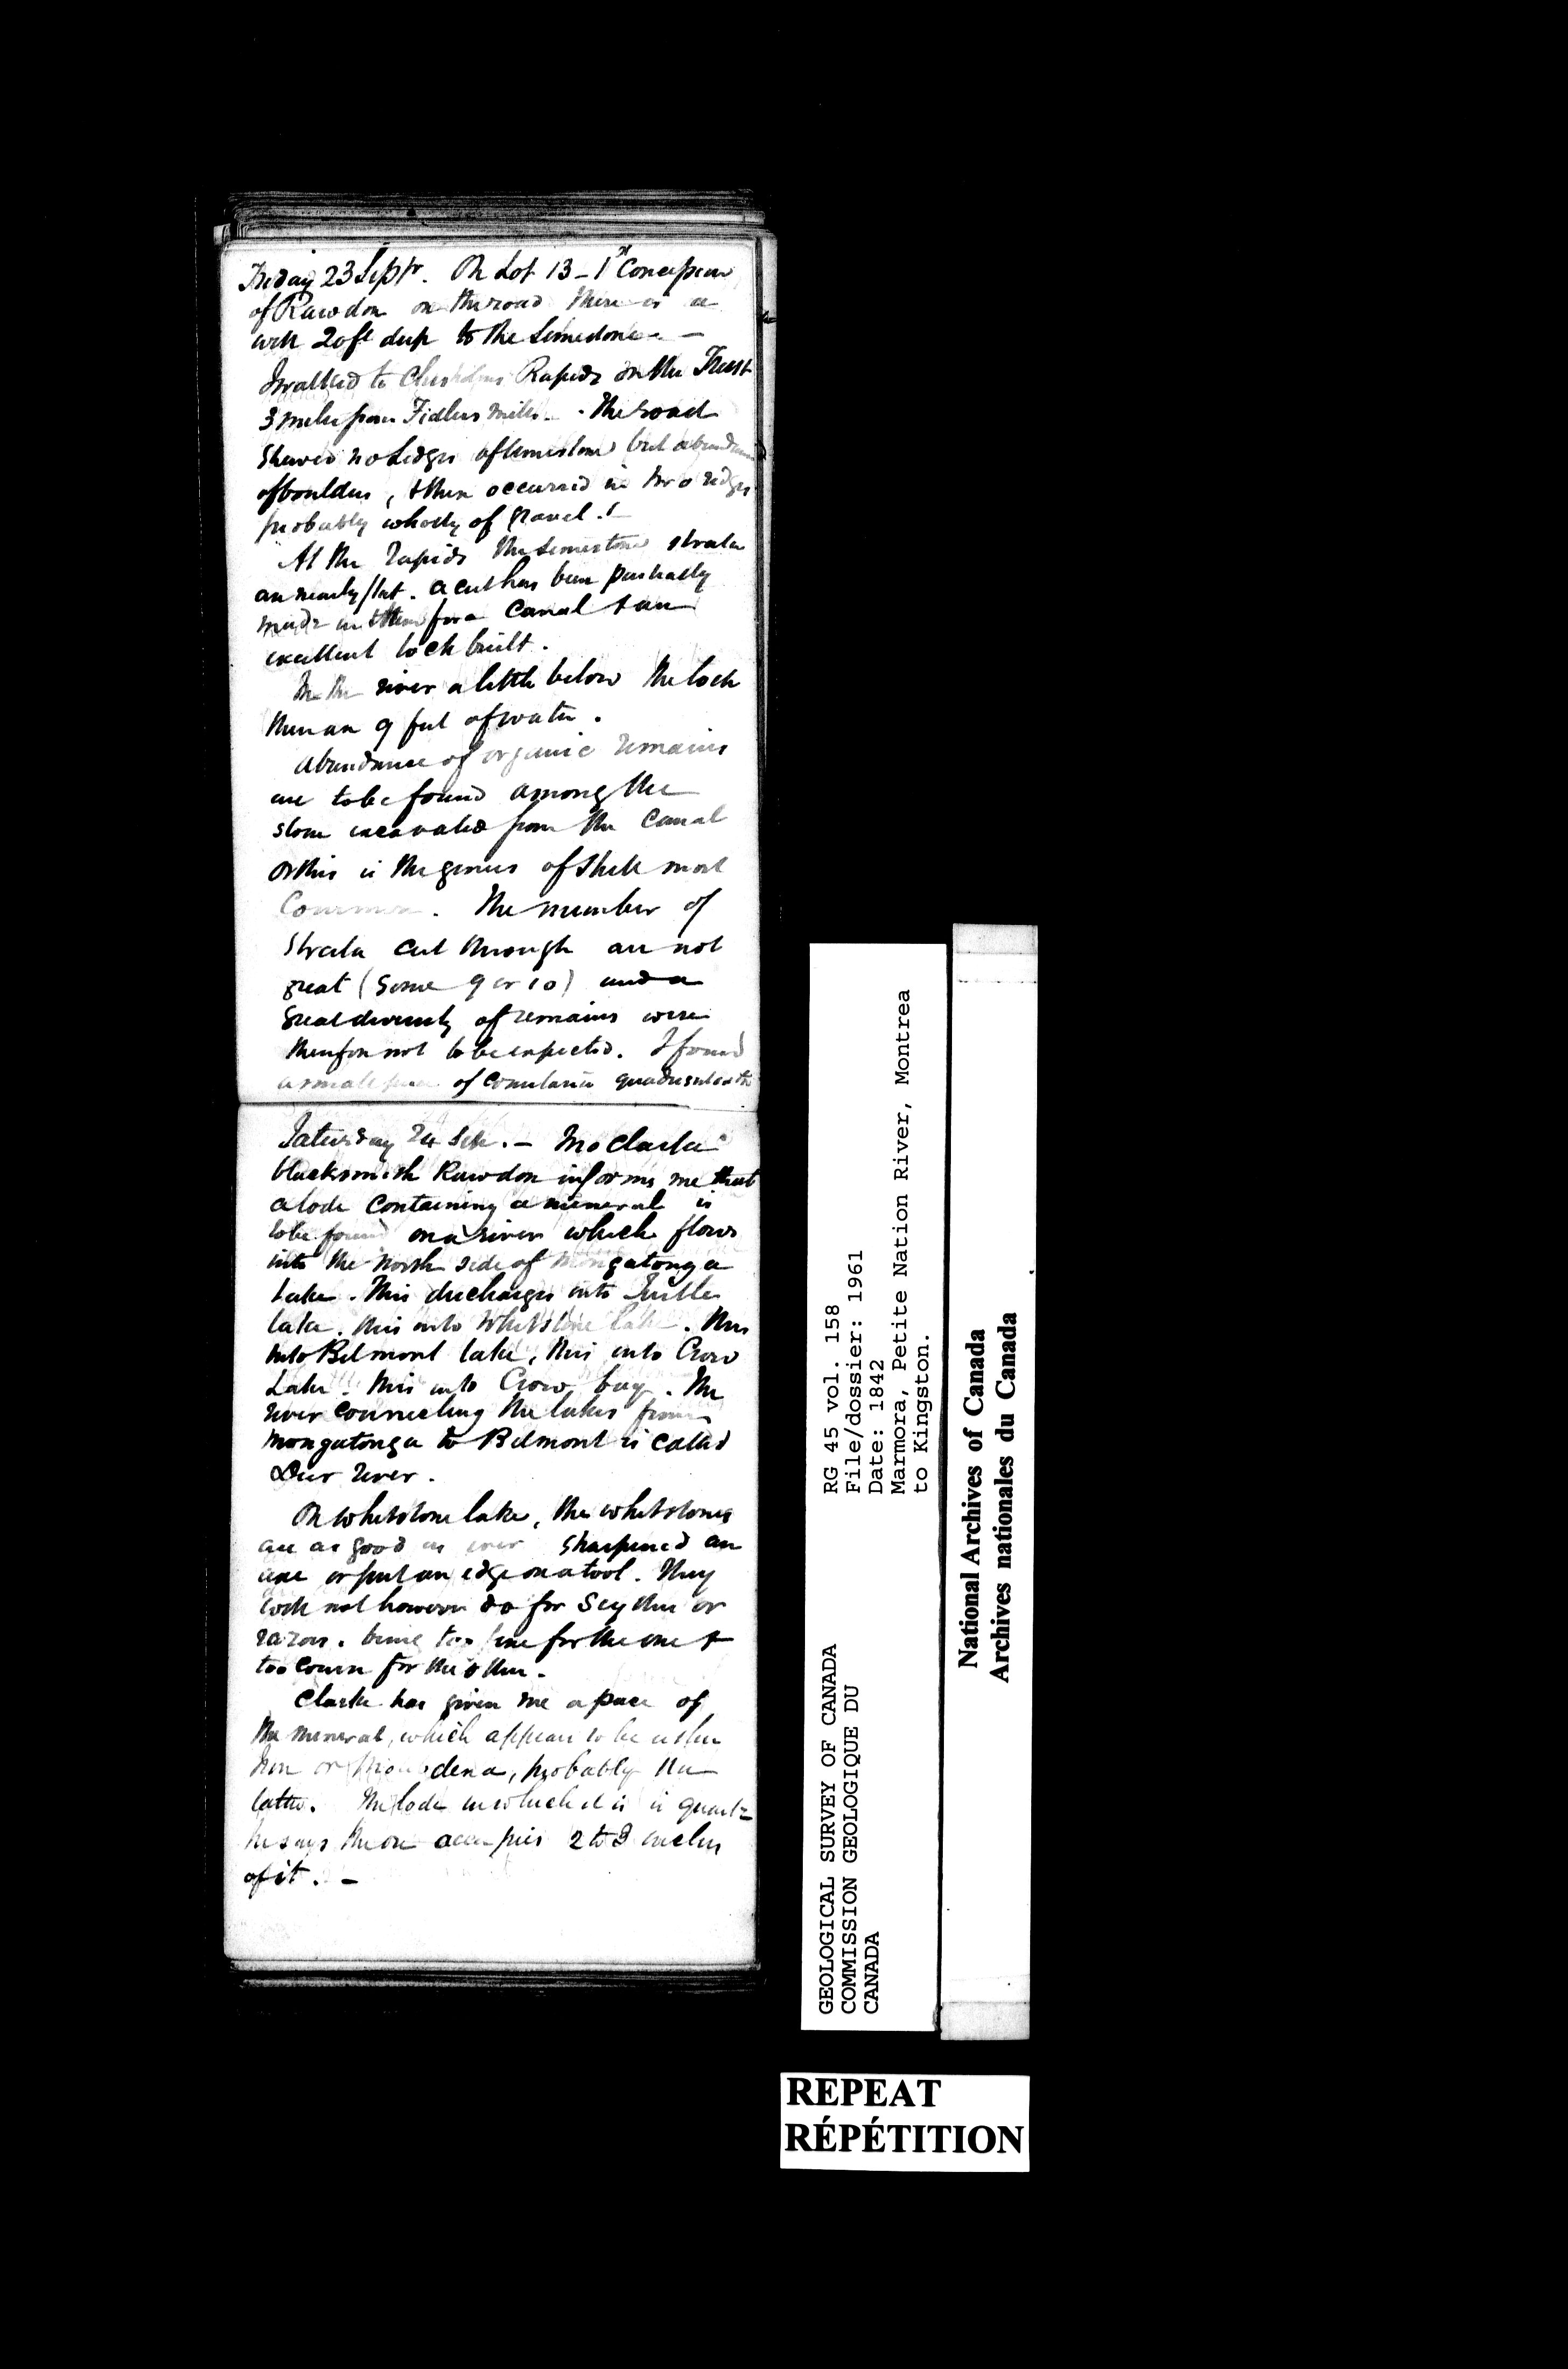 Friday 23 Septr. On Lot 13 - 1st Concession
of Rawdon on the road there is a
well 20 ft deep to the limestone - -
I walked to Rapids on the Trent
3 miles from Fidlers mills. - The road
shewed no ledges of limestone but abundance
of boulders, & then occurred in two ridges
probably wholly of gravel. -
At the rapids the limestone strata
are nearly flat. A cut has been partially
made in them for a canal & an
excellent lock built.
In the river a little below the lock
there are 9 feet of water.
Abundance of organic remains
are to be found among the
stone excavated from the canal
Orthis is the genus of shell most
Common. The number of
strata cut through are not
great (some 9 or 10) and a
great diversity of remains were
therefore not to be expected. I found
a small piece of Conularia quadrisulcata
Saturday 24 Sep. - Mr Clarke
blacksmith Rawdon informs me that
a lode containing a mineral is
to be found on a river which flows
into the north side of Mongatonga
Lake. This discharges into Turtle
lake. this into Whetstone lake. This
into Belmont lake, this into Crow
Lake. this into Crow bay. The
river connecting the lakes from
Mongatonga to Belmont is called
Deer river.
On whetstone lake, the whetstones
are as good as ever sharpened an
axe or put an edge on a tool. They
will not however do for Scythes or
razors. being too fine for the one &
too coarse for the other.
Clarke has given me a piece of
the mineral, which appears to be either
Iron or , probably the
latter. The lode in which it is is quartz
he says the ore occupies 2 to 3 inches
of it. -
RG 45 vol. 158
File/dossier: 1961
Date: 1842
Marmora, Petite Nation River, Montrea
to Kingston.
GEOLOGICAL SURVEY OF CANADA
COMMISSION GEOLOGIQUE DU
CANADA
National Archives of Canada
Archives nationales du Canada
REPEAT
RÉPÉTITION